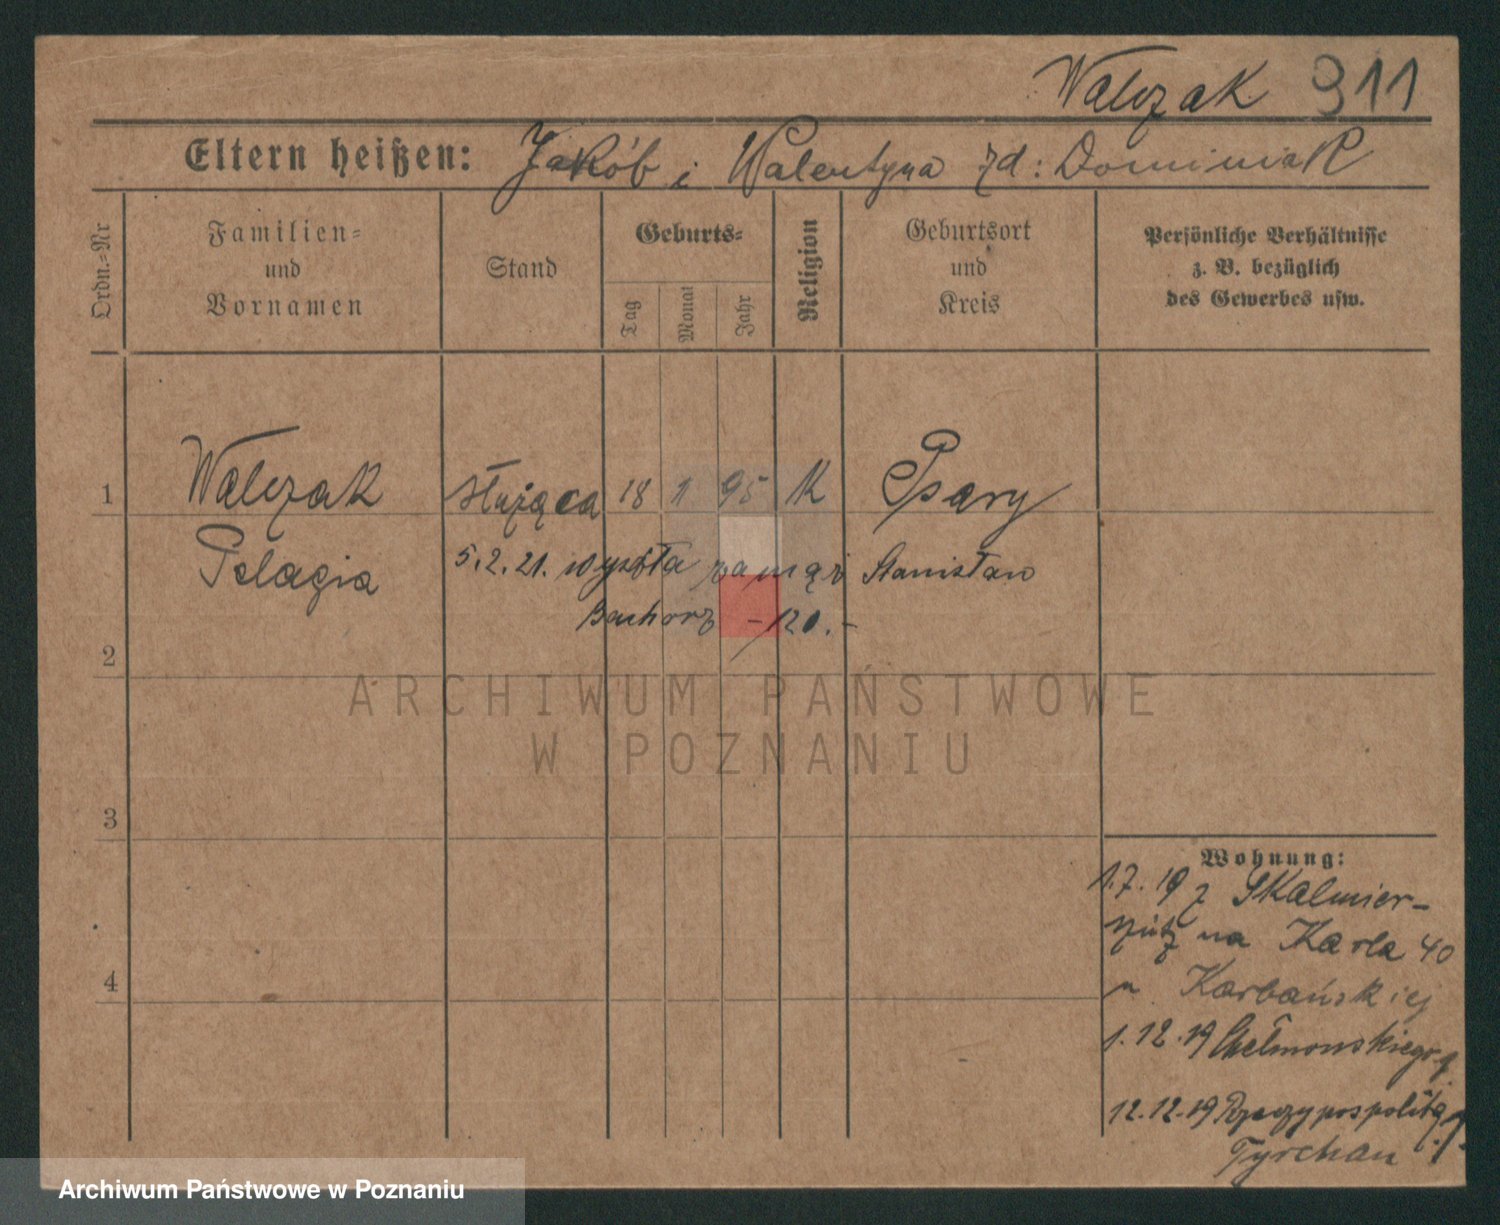 Walczak 911
Eltern heißen: Jakób i Walentyna zd: Dominiak
Ordn.=Nr
Familien=
und
Vornamen
Stand
Geburts=
Tag
Monat
Jahr
Religion
Geburtsort
und
Kreis
Persönliche Verhältnisse
z. B. bezüglich
des Gewerbes usw.
1 Walczak służąca 18 1 95 K Psary
Pelagia 5.2.21. wyszła zamąż Stanisław
Bachorz -120.-
2
ARCHIWUM PAŃSTWOWE
W POZNANIU
3
Wohnung:
1.7.19 z Skalmier-
na Karla 40
4
u Karbańskiej
1.12.19 Chełmońskiego
12.12.19 Rzeczypospolitą
Tyrchan
Archiwum Państwowe w Poznaniu